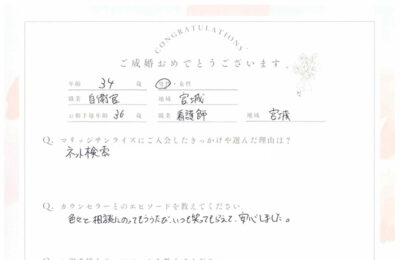 CONGRATULATIONS
ご成婚おめでとうございます。
年齢 34 歳 男性・女性
職業 自衛官 地域 宮城
お相手様年齢 36 歳 職業 看護師 地域 宮城
Q. マリッジサンライズにご入会したきっかけや選んだ理由は?
ネット検索
Q. カウンセラーとのエピソードを教えてください。
色々と相談にのってもらうたび、いつも笑ってもらえて、安心しました。